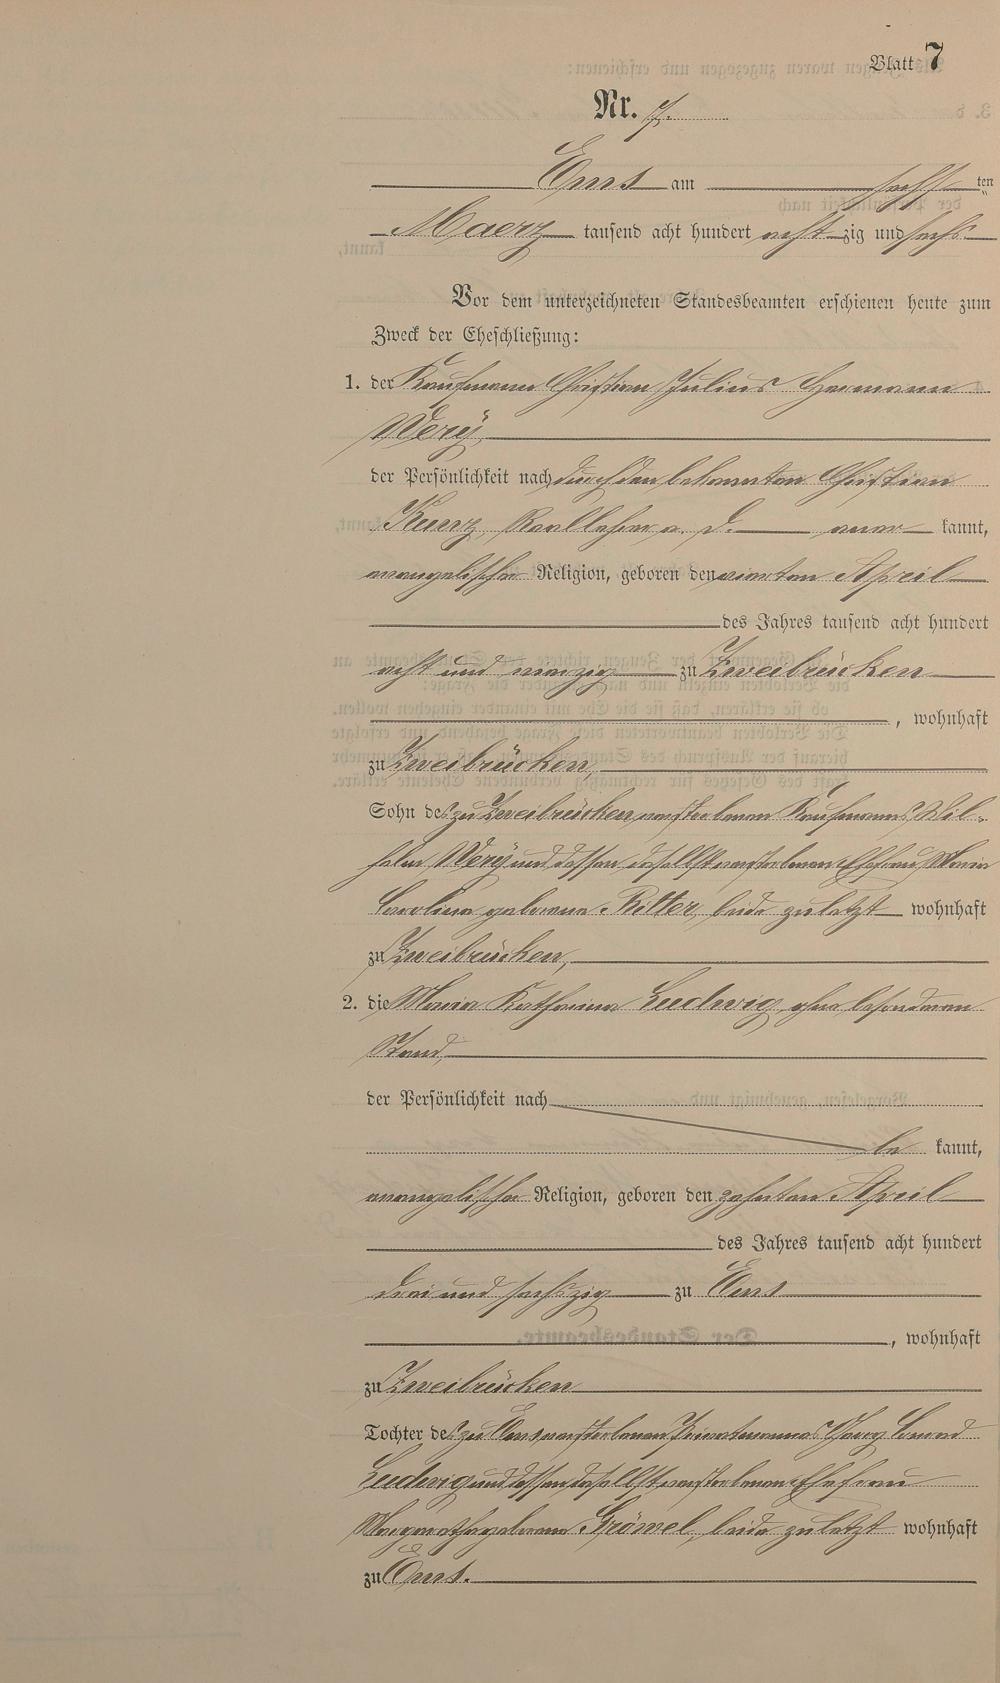 Blatt 7
Nr. 7.
Ems am sechsten
Maerz tausend acht hundert achtzig und sechs
Vor dem unterzeichneten Standesbeamten erschienen heute zum
Zweck der Eheschließung:
1. der Kaufmann Christian Julius Hermann
Wery,
der Persönlichkeit nach durch den bekannten Christian
Kunz, Reallehrer a. D. aner kannt,
evangelischer Religion, geboren den vierten April
des Jahres tausend acht hundert
acht und vierzig zu Zweibrücken
, wohnhaft
zu Zweibrücken,
Sohn des zu Zweibrücken verstorbenen Kaufmanns Wil-
helm Wery und dessen daselbst verstorbenen Ehefrau Maria
Carolina geborene Ritter, beide zuletzt wohnhaft
zu Zweibrücken,
2. die Maria Katharina Ludwig, ohne besonderen
Stand,
der Persönlichkeit nach
be kannt,
evangelischer Religion, geboren den zehnten April
des Jahres tausend acht hundert
drei und sechszig zu Ems
, wohnhaft
zu Zweibrücken
Tochter des zu Ems verstorbenen Privatmannes Georg Conrad
Ludwig und dessen daselbst verstorbenen Ehefrau
Margarethe geborene beide zuletzt wohnhaft
zu Ems.